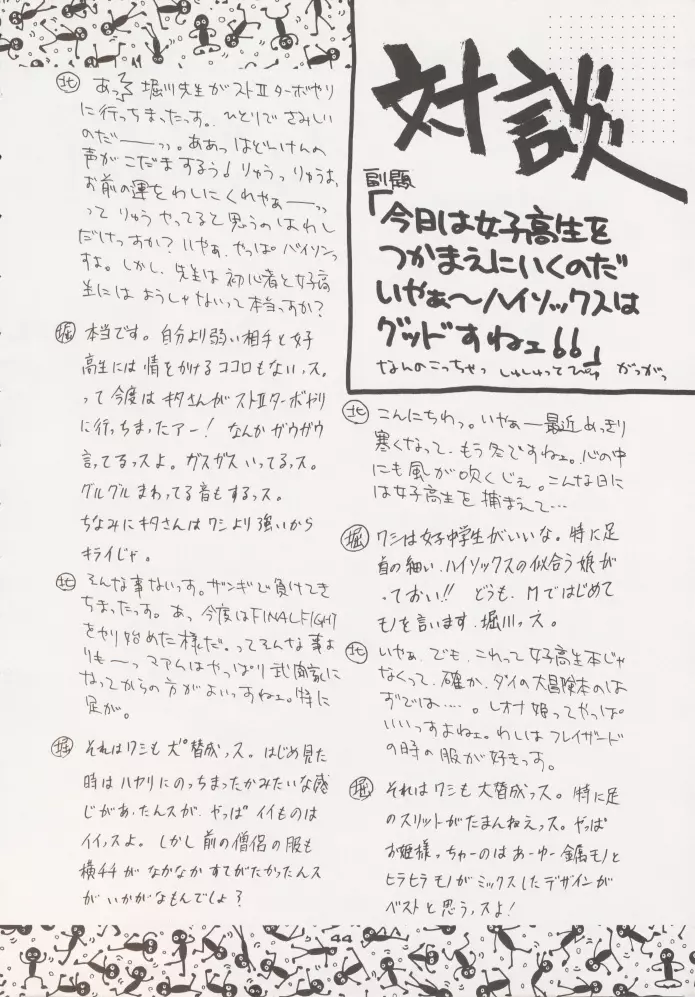 対談
副題
「今日は女子高生を
つかまえにいくのだ
いやぁ〜ハイソックスは
グッドすねェ66」
なんのこっちゃっ しゅしゅってぴゅ がっがっ
北 こんにちわっ。いやぁー最近めっきり
寒くなって、もう冬ですねェ。心の中
にも風が吹くじぇ。こんな日に
は女子高生を捕まえて…
堀 ワシは女子中学生がいいな。特に足
首の細い、ハイソックスの似合う娘が
っておい!! どうも、Mではじめて
モノを言います、堀川っス。
北 いやぁ、でも、これって女子高生本じゃ
なくって、確か、ダイの大冒険本のは
ずでは……。レオナ姫ってやっぱ
いいっすよねェ。わしはフレイザード
の時の服が好きっす。
堀 それはワシも大賛成っス。特に足
のスリットがたまんねえっス。やっぱ
お姫様っちゅーのはあーゆー金属モノと
ヒラヒラモノがミックスしたデザインが
ベストと思うっスよ!
北 あっ 堀川先生がストⅡターボやり
に行っちまったっす。ひとりでさみしい
のだ——ッッ。ああっはどーけんの
声がこだまするぅ! りゅうっ りゅうよ
お前の運をわしにくれやぁ——ッッ
って りゅう やってると思うのはわし
だけっすか? いやぁ、やっぱ バイソンっ
すよ。しかし、先生は初心者と女子高
生には ようしゃないって本当っすか?
堀 本当です。自分より弱い相手と女子
高生には情をかけるココロもないっス。
って今度はキタさんがストⅡターボやり
に行っちまったアー! なんかガウガウ
言ってるっスよ。ガスガスいってるっス。
グルグルまわってる音もするっス。
ちなみにキタさんはワシより強いから
キライじゃ。
北 そんな事ないっす。ザンギで負けてき
ちまったっす。あっ 今度はFINALFIGHT
をやり始めた様だ。ってそんな事よ
りも—っマァムはやっぱり武闘家に
なってからの方がよいっすねェ。特に
足が。
堀 それはワシも大賛成っス。はじめ見た
時はハヤリにのっちまったかみたいな感
じがあったんスが、やっぱイイものは
イイっスよ。しかし前の僧侶の服も
横チチがなかなかすてがたかったんス
がいかがなもんでしょ?
44